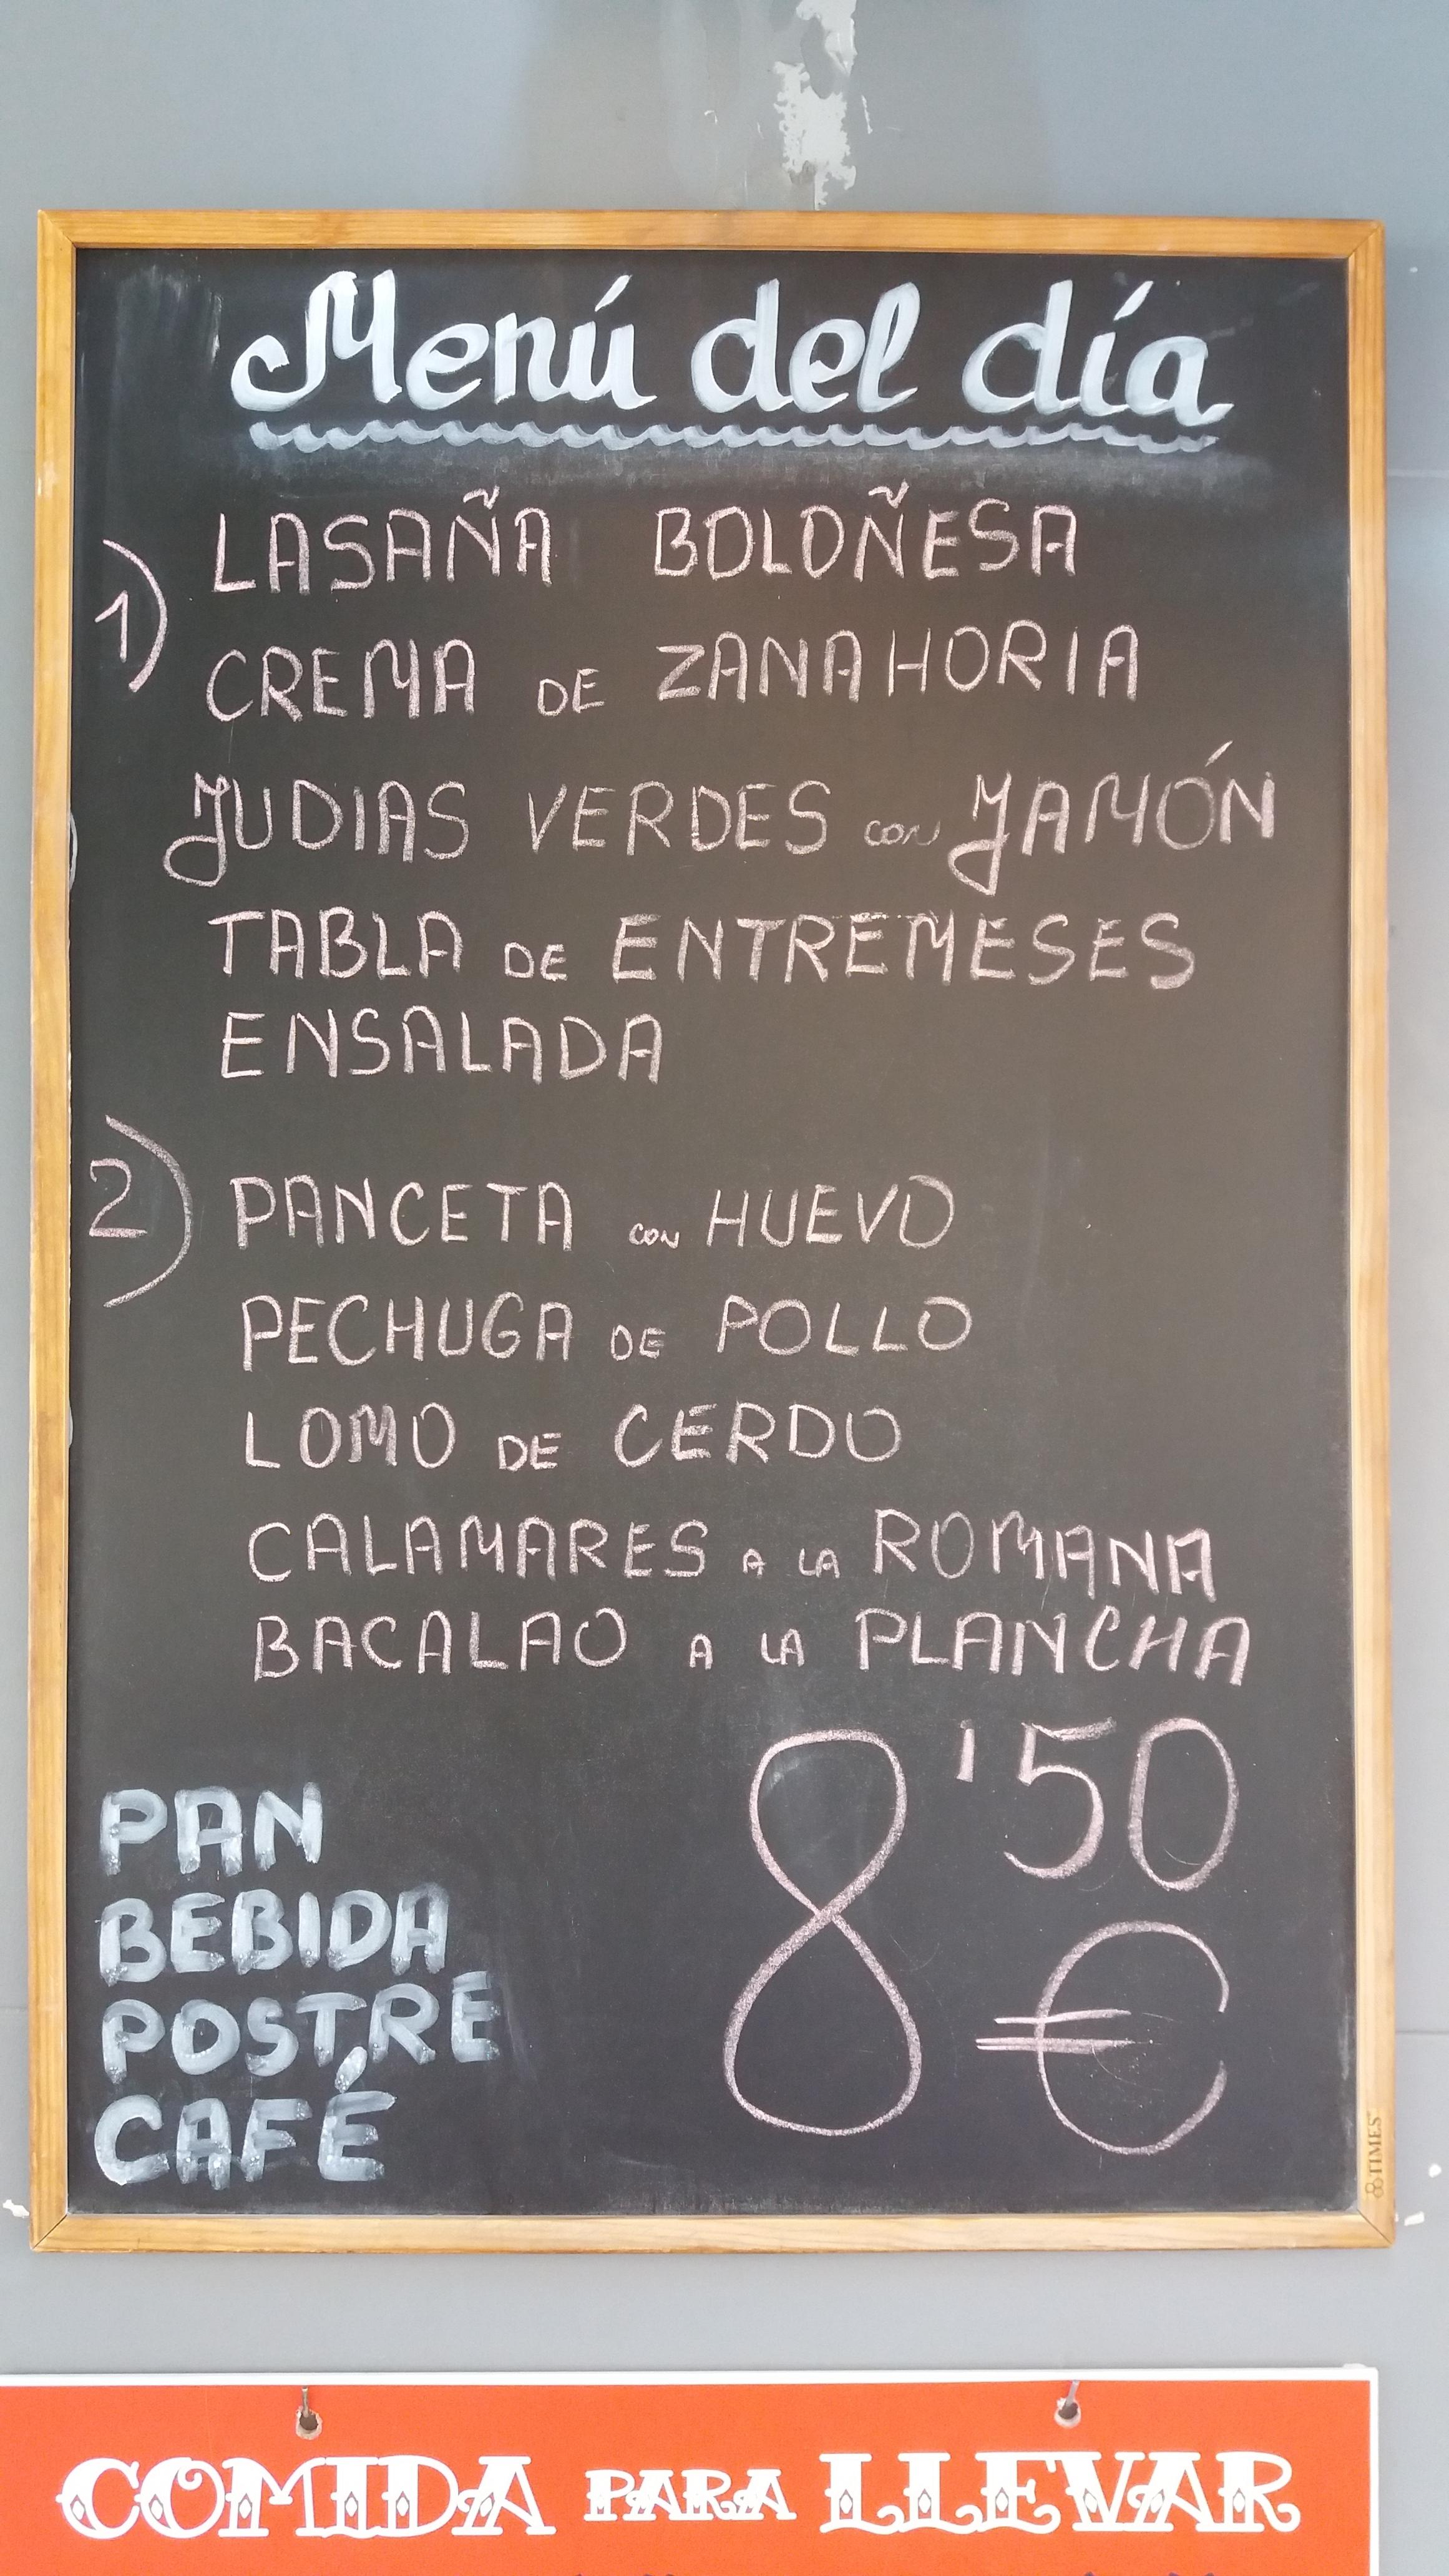 Menú del día
1) LASAÑA BOLOÑESA
CREMA DE ZANAHORIA
JUDIAS VERDES CON JAMÓN
TABLA DE ENTREMESES
ENSALADA
2) PANCETA CON HUEVO
PECHUGA DE POLLO
LOMO DE CERDO
CALAMARES A LA ROMANA
BACALAO A LA PLANCHA
8'50 €
PAN
BEBIDA
POSTRE
CAFÉ
TIMES
COMIDA PARA LLEVAR